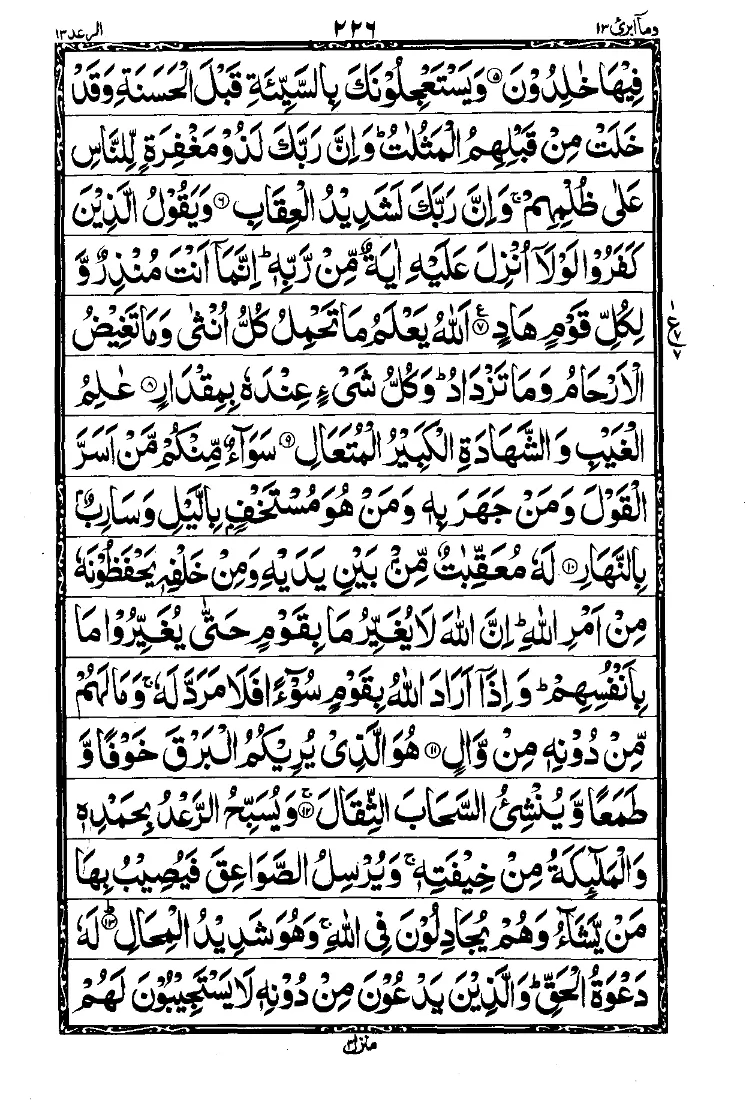 الرعد ١٣ ٢٢٦ وماۤ ابرئ ١٣
فِیْهَا خٰلِدُوْنَ ۝۵ وَیَسْتَعْجِلُوْنَكَ بِالسَّیِّئَةِ قَبْلَ الْحَسَنَةِ وَقَدْ
خَلَتْ مِنْ قَبْلِهِمُ الْمَثُلٰتُ ؕ وَاِنَّ رَبَّكَ لَذُوْ مَغْفِرَةٍ لِّلنَّاسِ
عَلٰی ظُلْمِهِمْ ۚ وَاِنَّ رَبَّكَ لَشَدِیْدُ الْعِقَابِ ۝۶ وَیَقُوْلُ الَّذِیْنَ
كَفَرُوْا لَوْلَاۤ اُنْزِلَ عَلَیْهِ اٰیَةٌ مِّنْ رَّبِّهٖ ؕ اِنَّمَاۤ اَنْتَ مُنْذِرٌ وَّ
لِكُلِّ قَوْمٍ هَادٍ ۝۷ ع اَللّٰهُ یَعْلَمُ مَا تَحْمِلُ كُلُّ اُنْثٰی وَمَا تَغِیْضُ
ع ٧ ٧
الْاَرْحَامُ وَمَا تَزْدَادُ ؕ وَكُلُّ شَیْءٍ عِنْدَهٗ بِمِقْدَارٍ ۝۸ عٰلِمُ
الْغَیْبِ وَالشَّهَادَةِ الْكَبِیْرُ الْمُتَعَالِ ۝۹ سَوَآءٌ مِّنْكُمْ مَّنْ اَسَرَّ
الْقَوْلَ وَمَنْ جَهَرَ بِهٖ وَمَنْ هُوَ مُسْتَخْفٍۭ بِالَّیْلِ وَسَارِبٌۢ
بِالنَّهَارِ ۝۱۰ لَهٗ مُعَقِّبٰتٌ مِّنْۢ بَیْنِ یَدَیْهِ وَمِنْ خَلْفِهٖ یَحْفَظُوْنَهٗ
مِنْ اَمْرِ اللّٰهِ ؕ اِنَّ اللّٰهَ لَا یُغَیِّرُ مَا بِقَوْمٍ حَتّٰی یُغَیِّرُوْا مَا
بِاَنْفُسِهِمْ ؕ وَاِذَاۤ اَرَادَ اللّٰهُ بِقَوْمٍ سُوْٓءًا فَلَا مَرَدَّ لَهٗ ۚ وَمَا لَهُمْ
مِّنْ دُوْنِهٖ مِنْ وَّالٍ ۝۱۱ هُوَ الَّذِیْ یُرِیْكُمُ الْبَرْقَ خَوْفًا وَّ
طَمَعًا وَّیُنْشِئُ السَّحَابَ الثِّقَالَ ۝۱۲ ۚ وَیُسَبِّحُ الرَّعْدُ بِحَمْدِهٖ
وَالْمَلٰٓئِكَةُ مِنْ خِیْفَتِهٖ ۚ وَیُرْسِلُ الصَّوَاعِقَ فَیُصِیْبُ بِهَا
مَنْ یَّشَآءُ وَهُمْ یُجَادِلُوْنَ فِی اللّٰهِ ۚ وَهُوَ شَدِیْدُ الْمِحَالِ ۝۱۳ ؕ لَهٗ
دَعْوَةُ الْحَقِّ ؕ وَالَّذِیْنَ یَدْعُوْنَ مِنْ دُوْنِهٖ لَا یَسْتَجِیْبُوْنَ لَهُمْ
منزل ٣